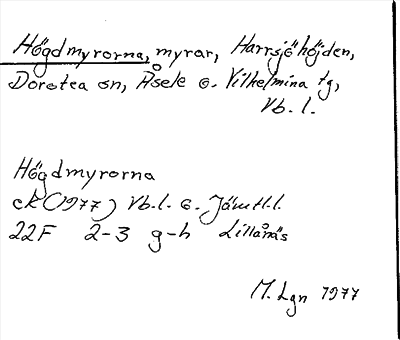 Högdmyrorna, myrar, Harrsjöhöjden,
Dorotea sn, Åsele o. Vilhelmina tg,
Vb. l.
Högdmyrorna
ek (1977) Vb.l. o. Jämtl.l.
22F 2-3 g-h Lillånäs
M. Lgn 1977